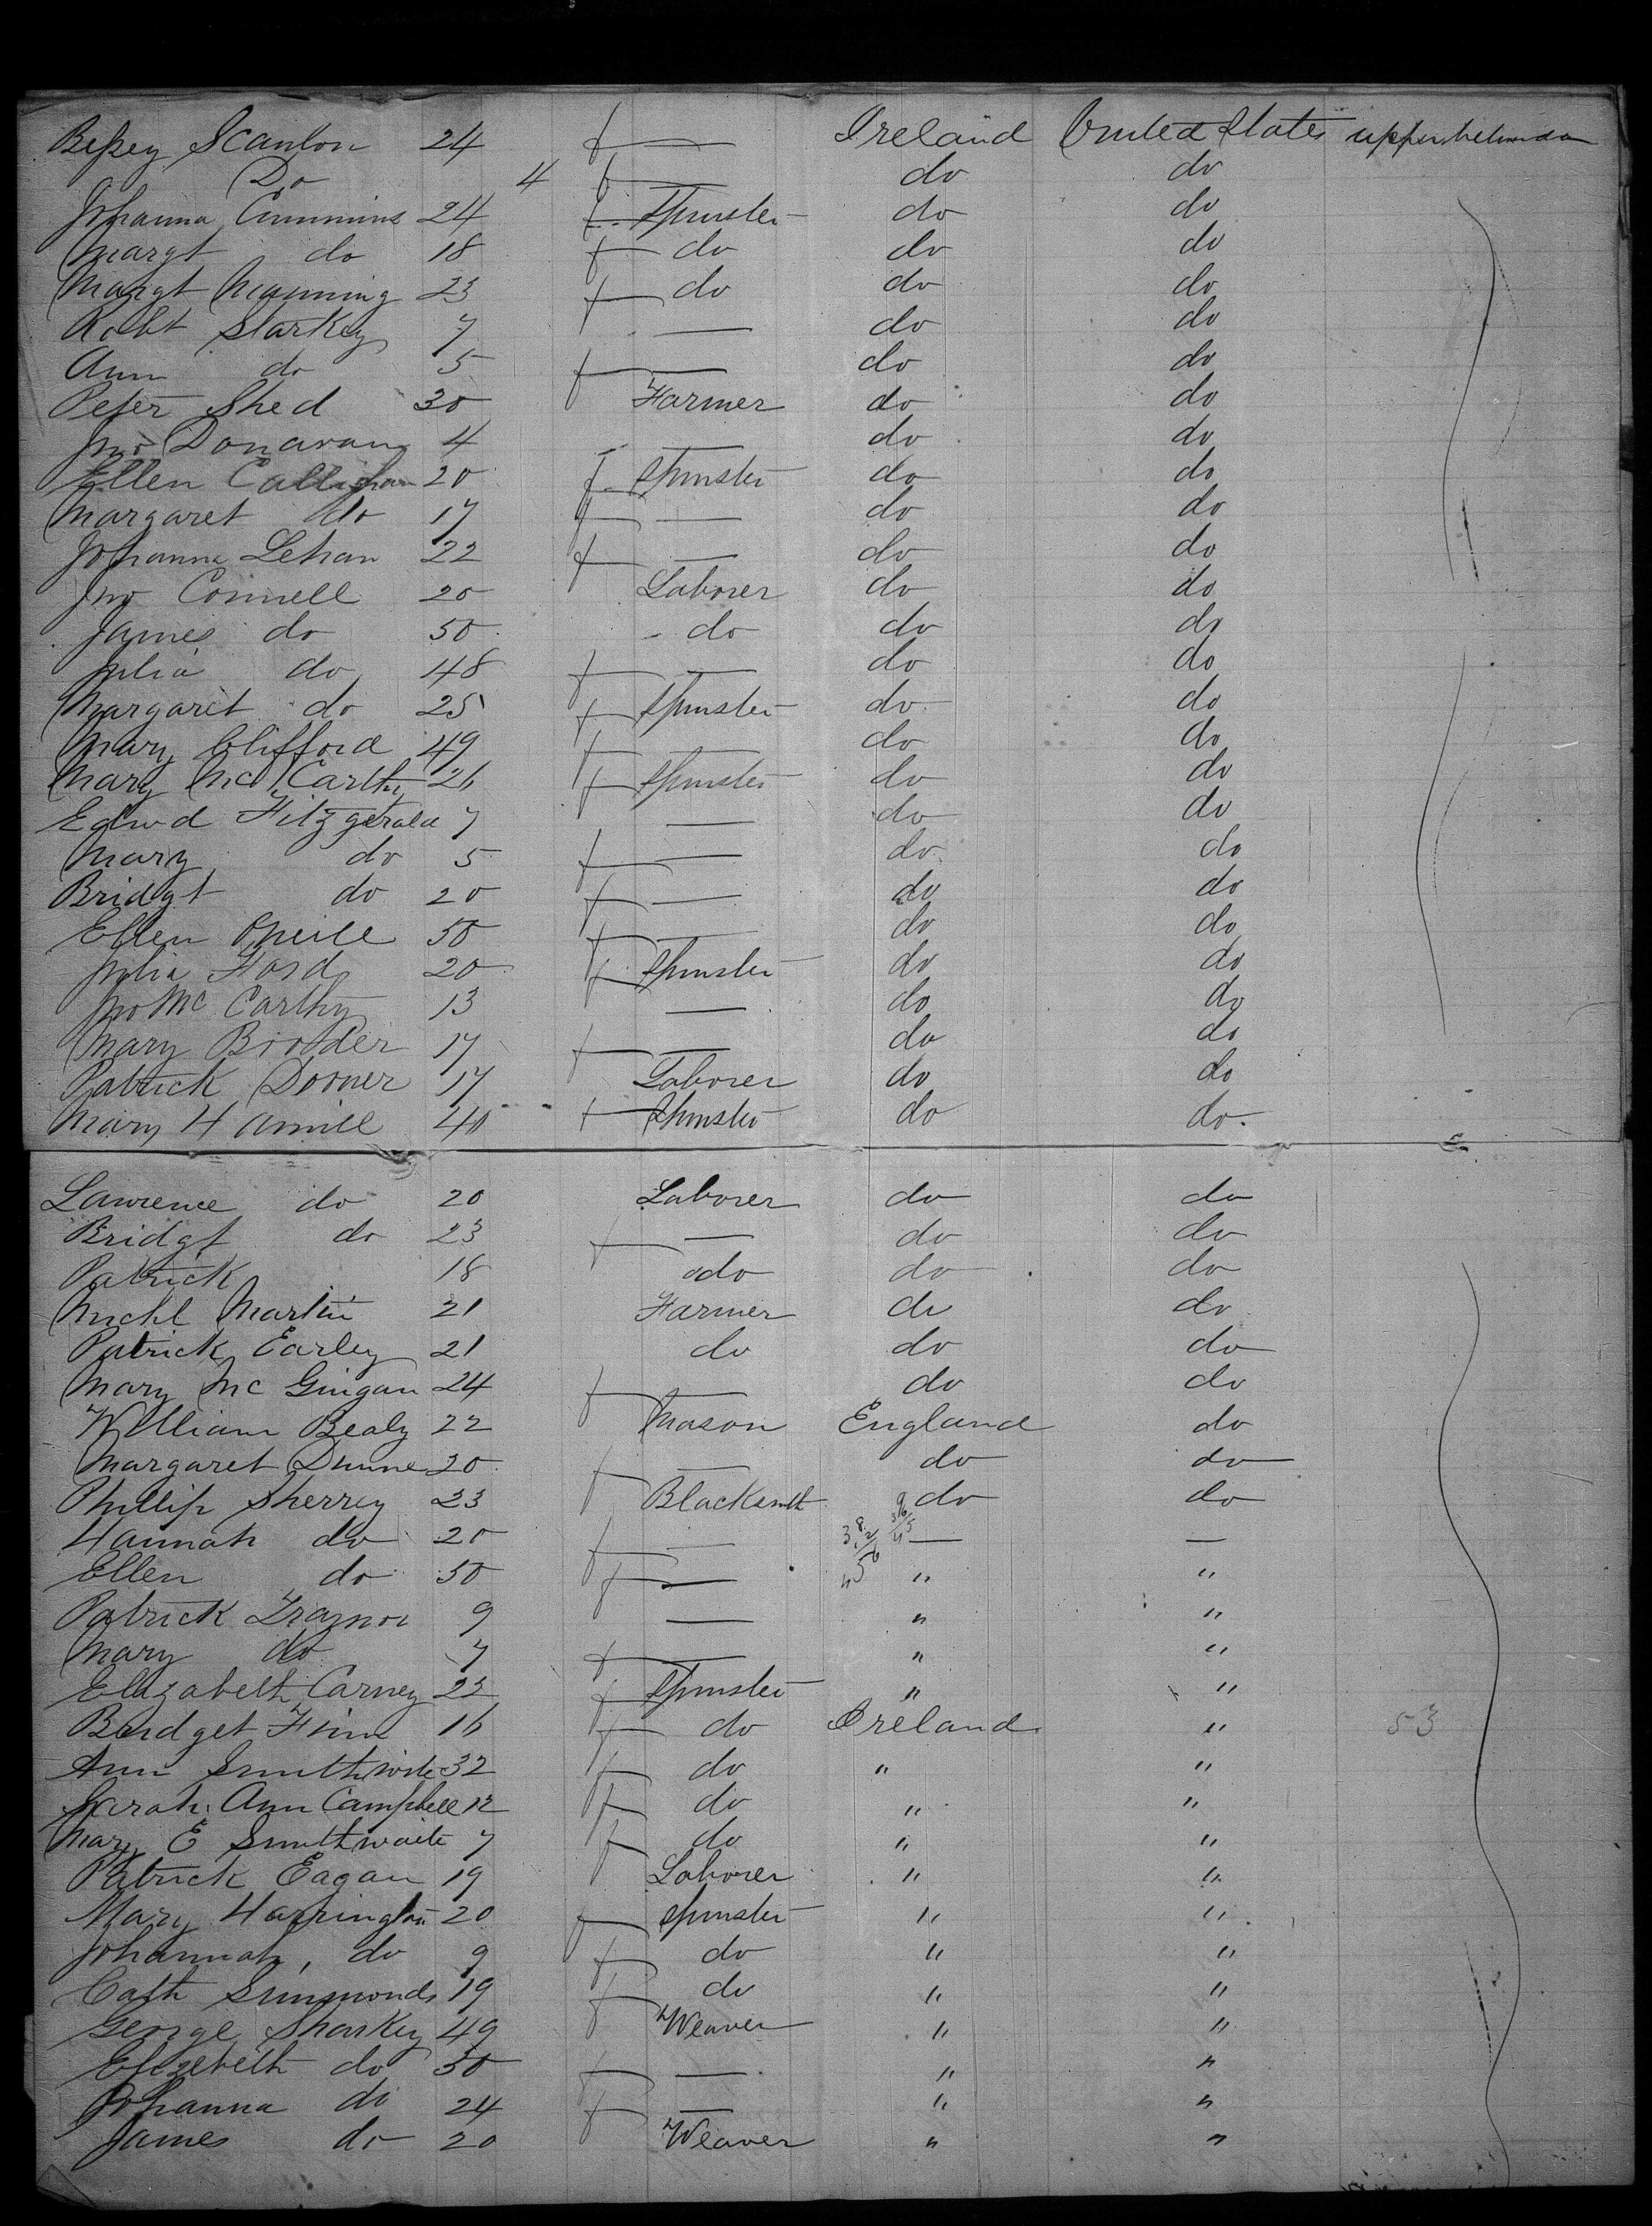 Bessey Scanlon 24 f — Ireland United States upper between
Do 4 f — do do
Johanna Cummins 24 f Spinster do do
Margt do 18 f do do do
Margt Manning 23 f do do do
Robt Starkey 7 — do do
Ann do 5 f — do do
Peter Shed 30 Farmer do do
Jno Donavan 4 — do do
Ellen Callighan 20 f Spinster do do
Margaret do 17 f — do do
Johanna Lehan 22 f — do do
Jno Connell 20 Laborer do do
James do 50 do do do
Julia do 48 f — do do
Margaret do 25 f Spinster do do
Mary Clifford 49 f — do do
Mary McCarthy 26 f Spinster do do
Edwd Fitzgerald 7 — do do
Mary do 5 f — do do
Bridgt do 20 f — do do
Ellen Oneill 50 f — do do
Julia Ford 20 f Spinster do do
Jno McCarthy 13 — do do
Mary Brooder 17 f — do do
Patrick Dooner 17 Laborer do do
Mary Hamill 40 f Spinster do do
Lawrence do 20 Laborer do do
Bridgt do 23 f — do do
Patrick 18 do do do
Michl Martin 21 Farmer do do
Patrick Earley 21 do do do
Mary McGuigan 24 f — do do
William Bealy 22 Mason England do
Margaret Dunne 20 f — do do
Phillip Sherrey 23 Blacksmith do do
Hannah do 20 f — — —
Ellen do 50 f — " "
Patrick Traynor 9 — " "
Mary do 7 f — " "
Elizabeth Carney 22 f Spinster " "
Bridget Finn 16 f do Ireland " 53
Ann Smithwite 32 f do " "
Sarah Ann Campbell 12 f do " "
Mary E Smithwaite 7 f do " "
Patrick Eagan 19 Laborer " "
Mary Harrington 20 f Spinster " "
Johannah, do 9 f do " "
Cath Simmonds 19 f do " "
George Sharkey 49 Weaver " "
Elizebeth do 50 f — " "
Johanna do 24 f — " "
James do 20 Weaver " "